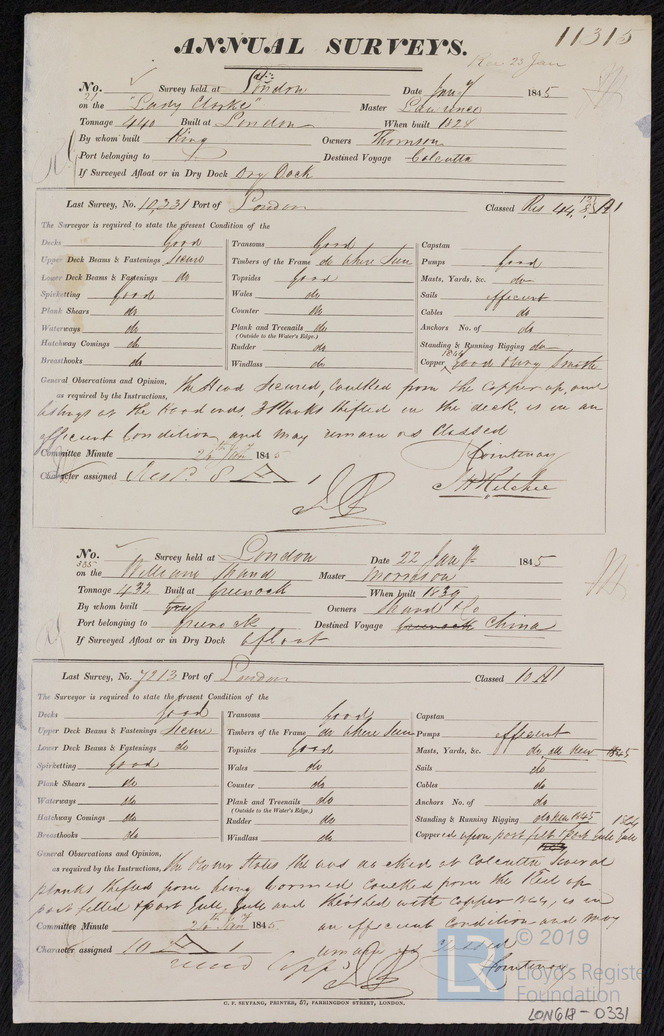 11315
ANNUAL SURVEYS.
Rec 23 Jan
No. 21 Survey held at London Date Jany 1845
on the "Lady Clarke" Master Lawrence
Tonnage 440 Built at London When built 1824
By whom built King Owners Thomson
Port belonging to Destined Voyage Calcutta
If Surveyed Afloat or in Dry Dock Dry Dock
Last Survey, No. 10,331 Port of London Classed Res 44. A1
The Surveyor is required to state the present Condition of the
Decks Good Transoms Good Capstan
Upper Deck Beams & Fastenings Secure Timbers of the Frame do where seen Pumps Good
Lower Deck Beams & Fastenings do Topsides Good Masts, Yards, &c. do
Spirketting Good Wales do Sails efficient
Plank Shears do Counter do Cables do
Waterways do Plank and Treenails do Anchors No. of do
(Outside to the Water's Edge.)
Hatchway Comings do Rudder do Standing & Running Rigging do
Breasthooks do Windlass do Copper 1844 good
General Observations and Opinion, The Head secured, Caulked from the Copper up, and
as required by the Instructions,
at the Hood ends. 3 Planks shifted in the deck, is in an
efficient Condition and may remain as Classed
Committee Minute 24th Jany 1845 Courtenay
Character assigned A 1 J H Ritchie
No. 335 Survey held at London Date 22 Jany 1845
on the William Shand Master Morrison
Tonnage 432 Built at Greenock When built 1839
By whom built Owners Shand & Co
Port belonging to Greenock Destined Voyage Greenock China
If Surveyed Afloat or in Dry Dock afloat
Last Survey, No. 7213 Port of London Classed 10 A1
The Surveyor is required to state the present Condition of the
Decks Good Transoms Good Capstan
Upper Deck Beams & Fastenings Secure Timbers of the Frame do where seen Pumps efficient
Lower Deck Beams & Fastenings do Topsides Good Masts, Yards, &c. do all new 1845
Spirketting good Wales do Sails do
Plank Shears do Counter do Cables do
Waterways do Plank and Treenails do Anchors No. of do
(Outside to the Water's Edge.)
Hatchway Comings do Rudder do Standing & Running Rigging do New 1845
Breasthooks do Windlass do Coppered upon part felt & part
General Observations and Opinion, The Owner States she was docked at Calcutta several
as required by the Instructions,
planks shifted from being wormed Caulked from the Keel up
part felted & part and sheathed with Copper is in
Committee Minute 24th Jany 1845 an efficient Condition and may
Character assigned 10 A 1 remain as Classed
Courtenay
C. F. SEYFANG, PRINTER, 57, FARRINGDON STREET, LONDON.
© 2019
LR Lloyd's Register
Foundation
LON618-0331